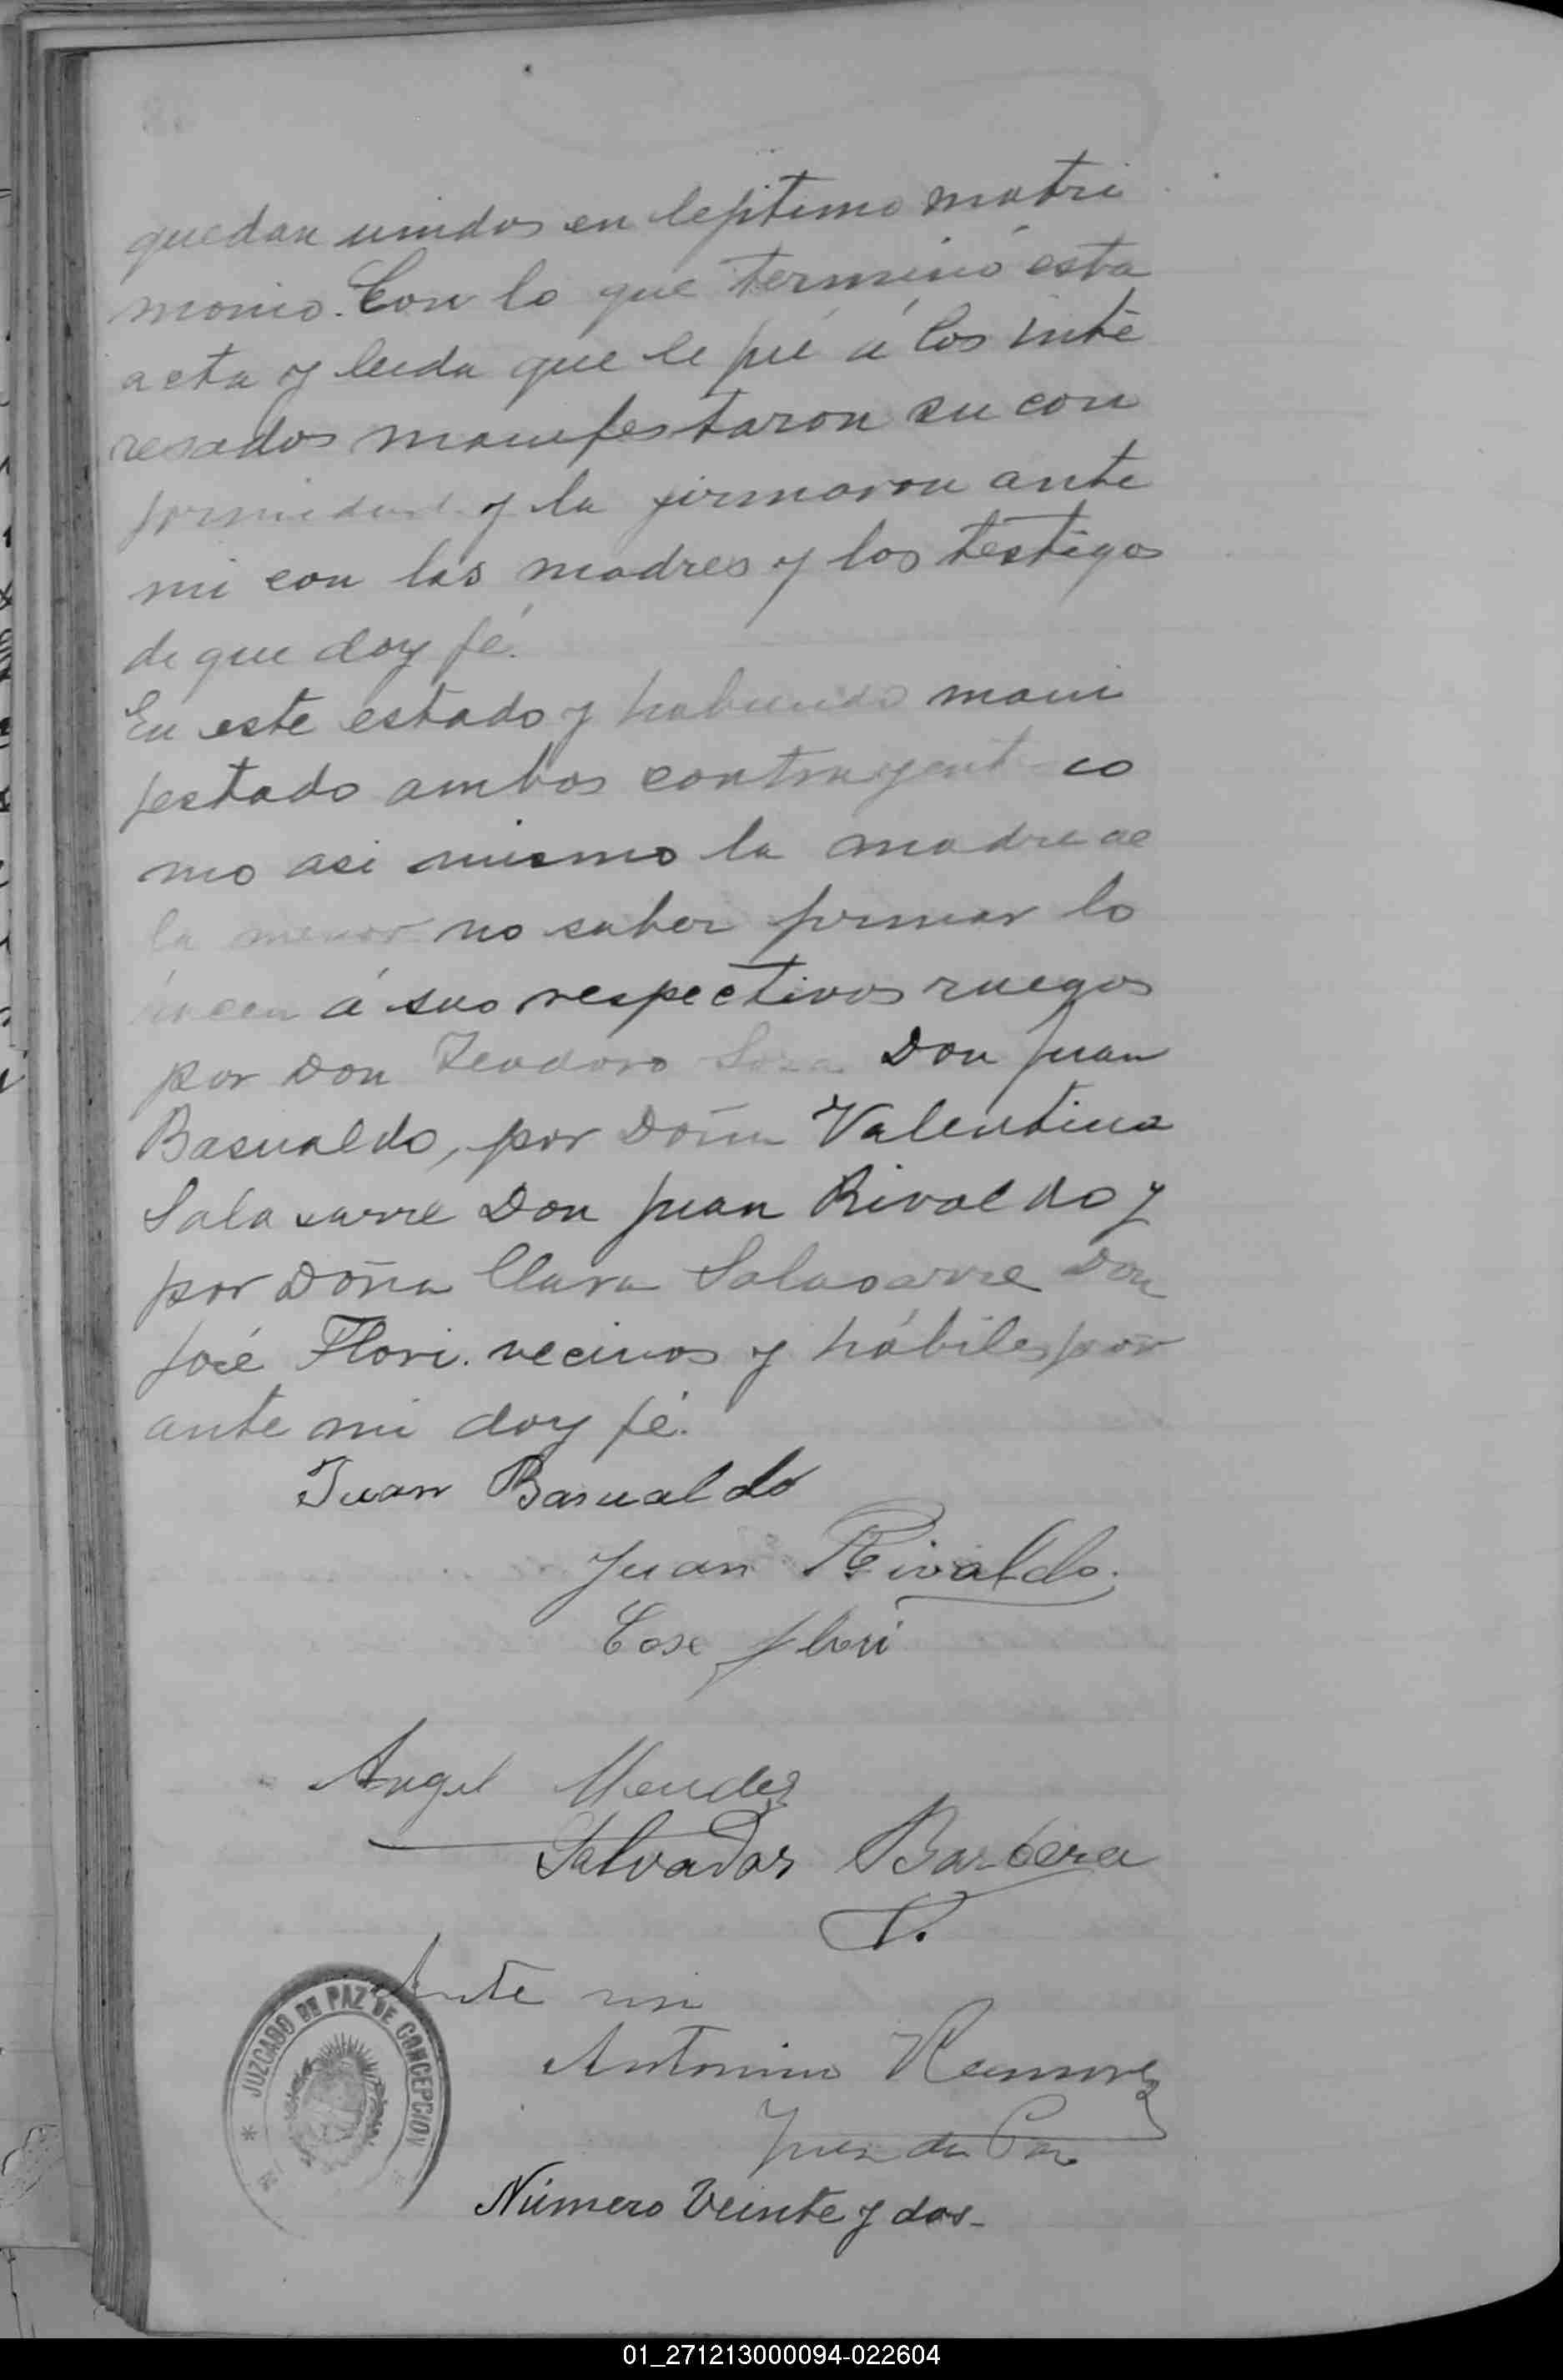 quedan unidos en lejitimo matri
monio. Con lo que terminó esta
acta y leida que le fué á los inte
resados manifestaron su con
formidad y la firmaron ante
mi con las madres y los testigos
de que doy fé.
En este estado y habiendo mani
festado ambos contrayent co
mo asi mismo la madre de
la menor no saber firmar lo
hacen á sus respectivos ruegos
por Don Teodoro Sosa Don Juan
Basualdo, por Doña Valentina
Salasarre Don Juan Rivaldo y
por Doña Clara Salasarre Don
José Flori. vecinos y hábiles por
ante mi doy fé.
Juan Basualdo
Juan Rivaldo.
Cose flori
Angel Mendez
Salvador Barbera
Ante mi
Antonino Ramirez
Juez de Paz
JUZGADO DE PAZ DE CONCEPCION
Número Veinte y dos-
01_271213000094-022604